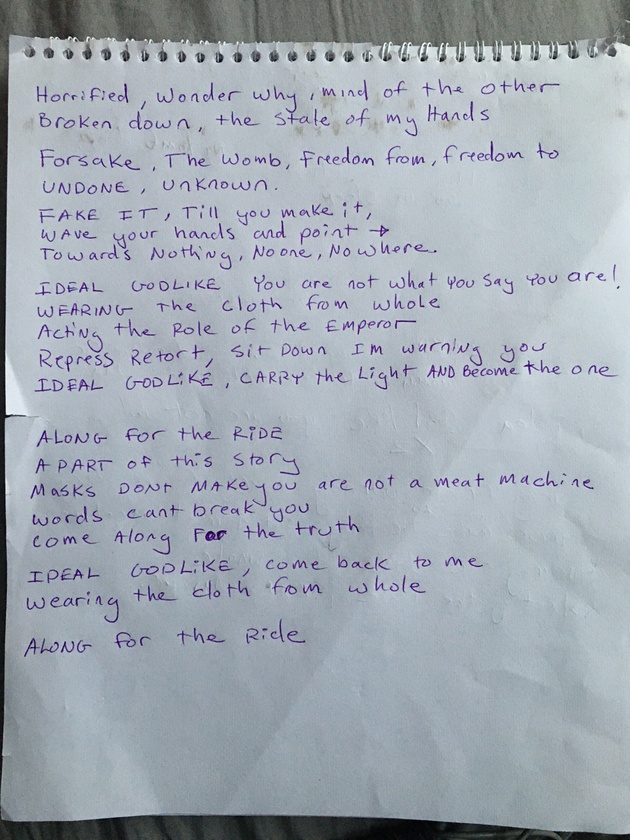 Horrified, Wonder why, mind of the other
Broken down, the State of my Hands
Forsake, The Womb, Freedom from, freedom to
UNDONE, UNKNOWN.
FAKE IT, Till you make it,
WAVE your hands and point →
Towards Nothing, No one, No where.
IDEAL GODLIKE You are not what You Say You are!,
WEARING The cloth from whole
Acting the Role of the Emperor
Repress Retort, Sit Down Im warning you
IDEAL GODLIKE, CARRY the Light AND Become the one
ALONG for the RIDE
A PART of this Story
Masks DONT MAKE you are not a meat machine
words cant break you
come Along For the truth
IDEAL GODLIKE, come back to me
wearing the cloth from whole
ALONG for the Ride